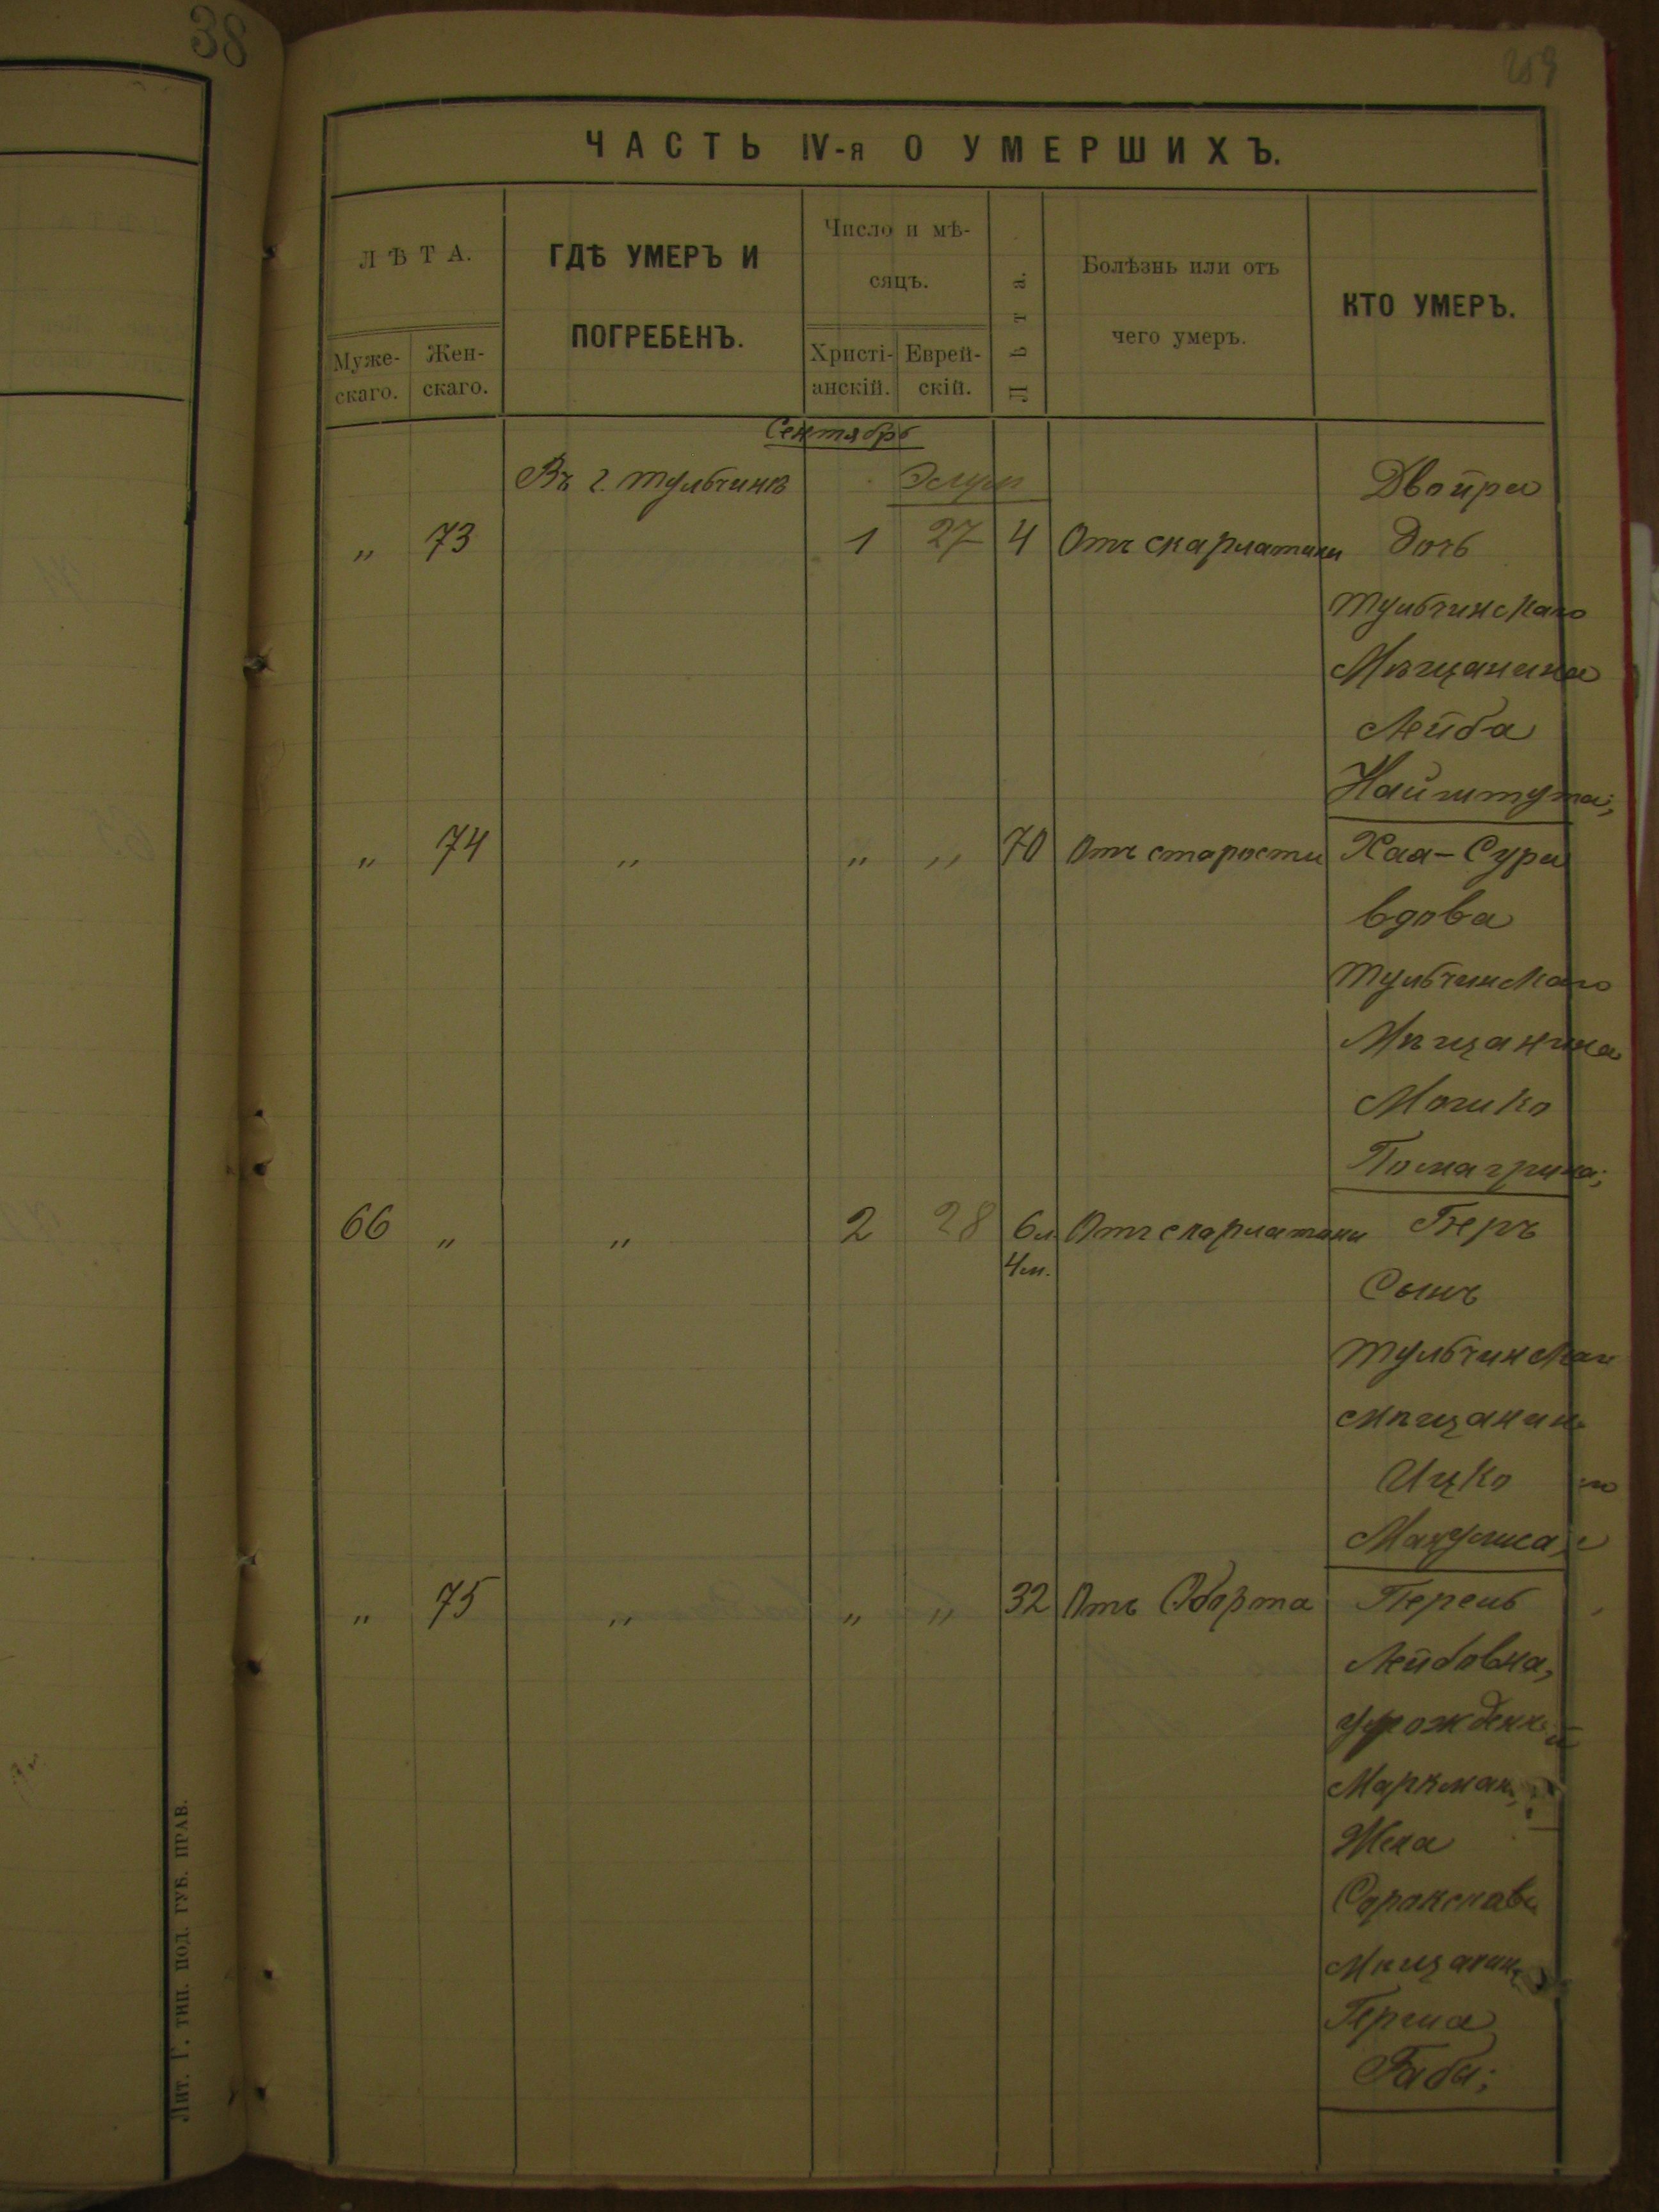 38
259
ЧАСТЬ IV-я О УМЕРШИХЪ.
ЛѢТА.
Муже-
скаго.
Жен-
скаго.
ГДѢ УМЕРЪ И
ПОГРЕБЕНЪ.
Число и мѣ-
сяцъ.
Христі-
анскій.
Еврей-
скій.
Лѣта.
Болѣзнь или отъ
чего умеръ.
КТО УМЕРЪ.
Сентябрь
Въ г. Тульчинѣ Элулъ Двойра
„ 73 1 27 4 Отъ скарлатины дочь
Тульчинскаго
Мѣщанина
Лейба
Найштута;
„ 74 „ „ „ 70 Отъ старости Хая-Сура
вдова
Тульчинскаго
Мѣщанина
Мошко
66 „ „ 2 28 6л. Отъ скарлатины Беръ
4м.
Сынъ
Тульчинскаго
мѣщанина
Ицко
„ 75 „ „ „ 32 Отъ Оборта Перель
Лейбовна,
урожденной
Маркман,
Жена
Мѣщанина
Герша
Лит. Г. тип. под. ГУБ. ПРАВ.